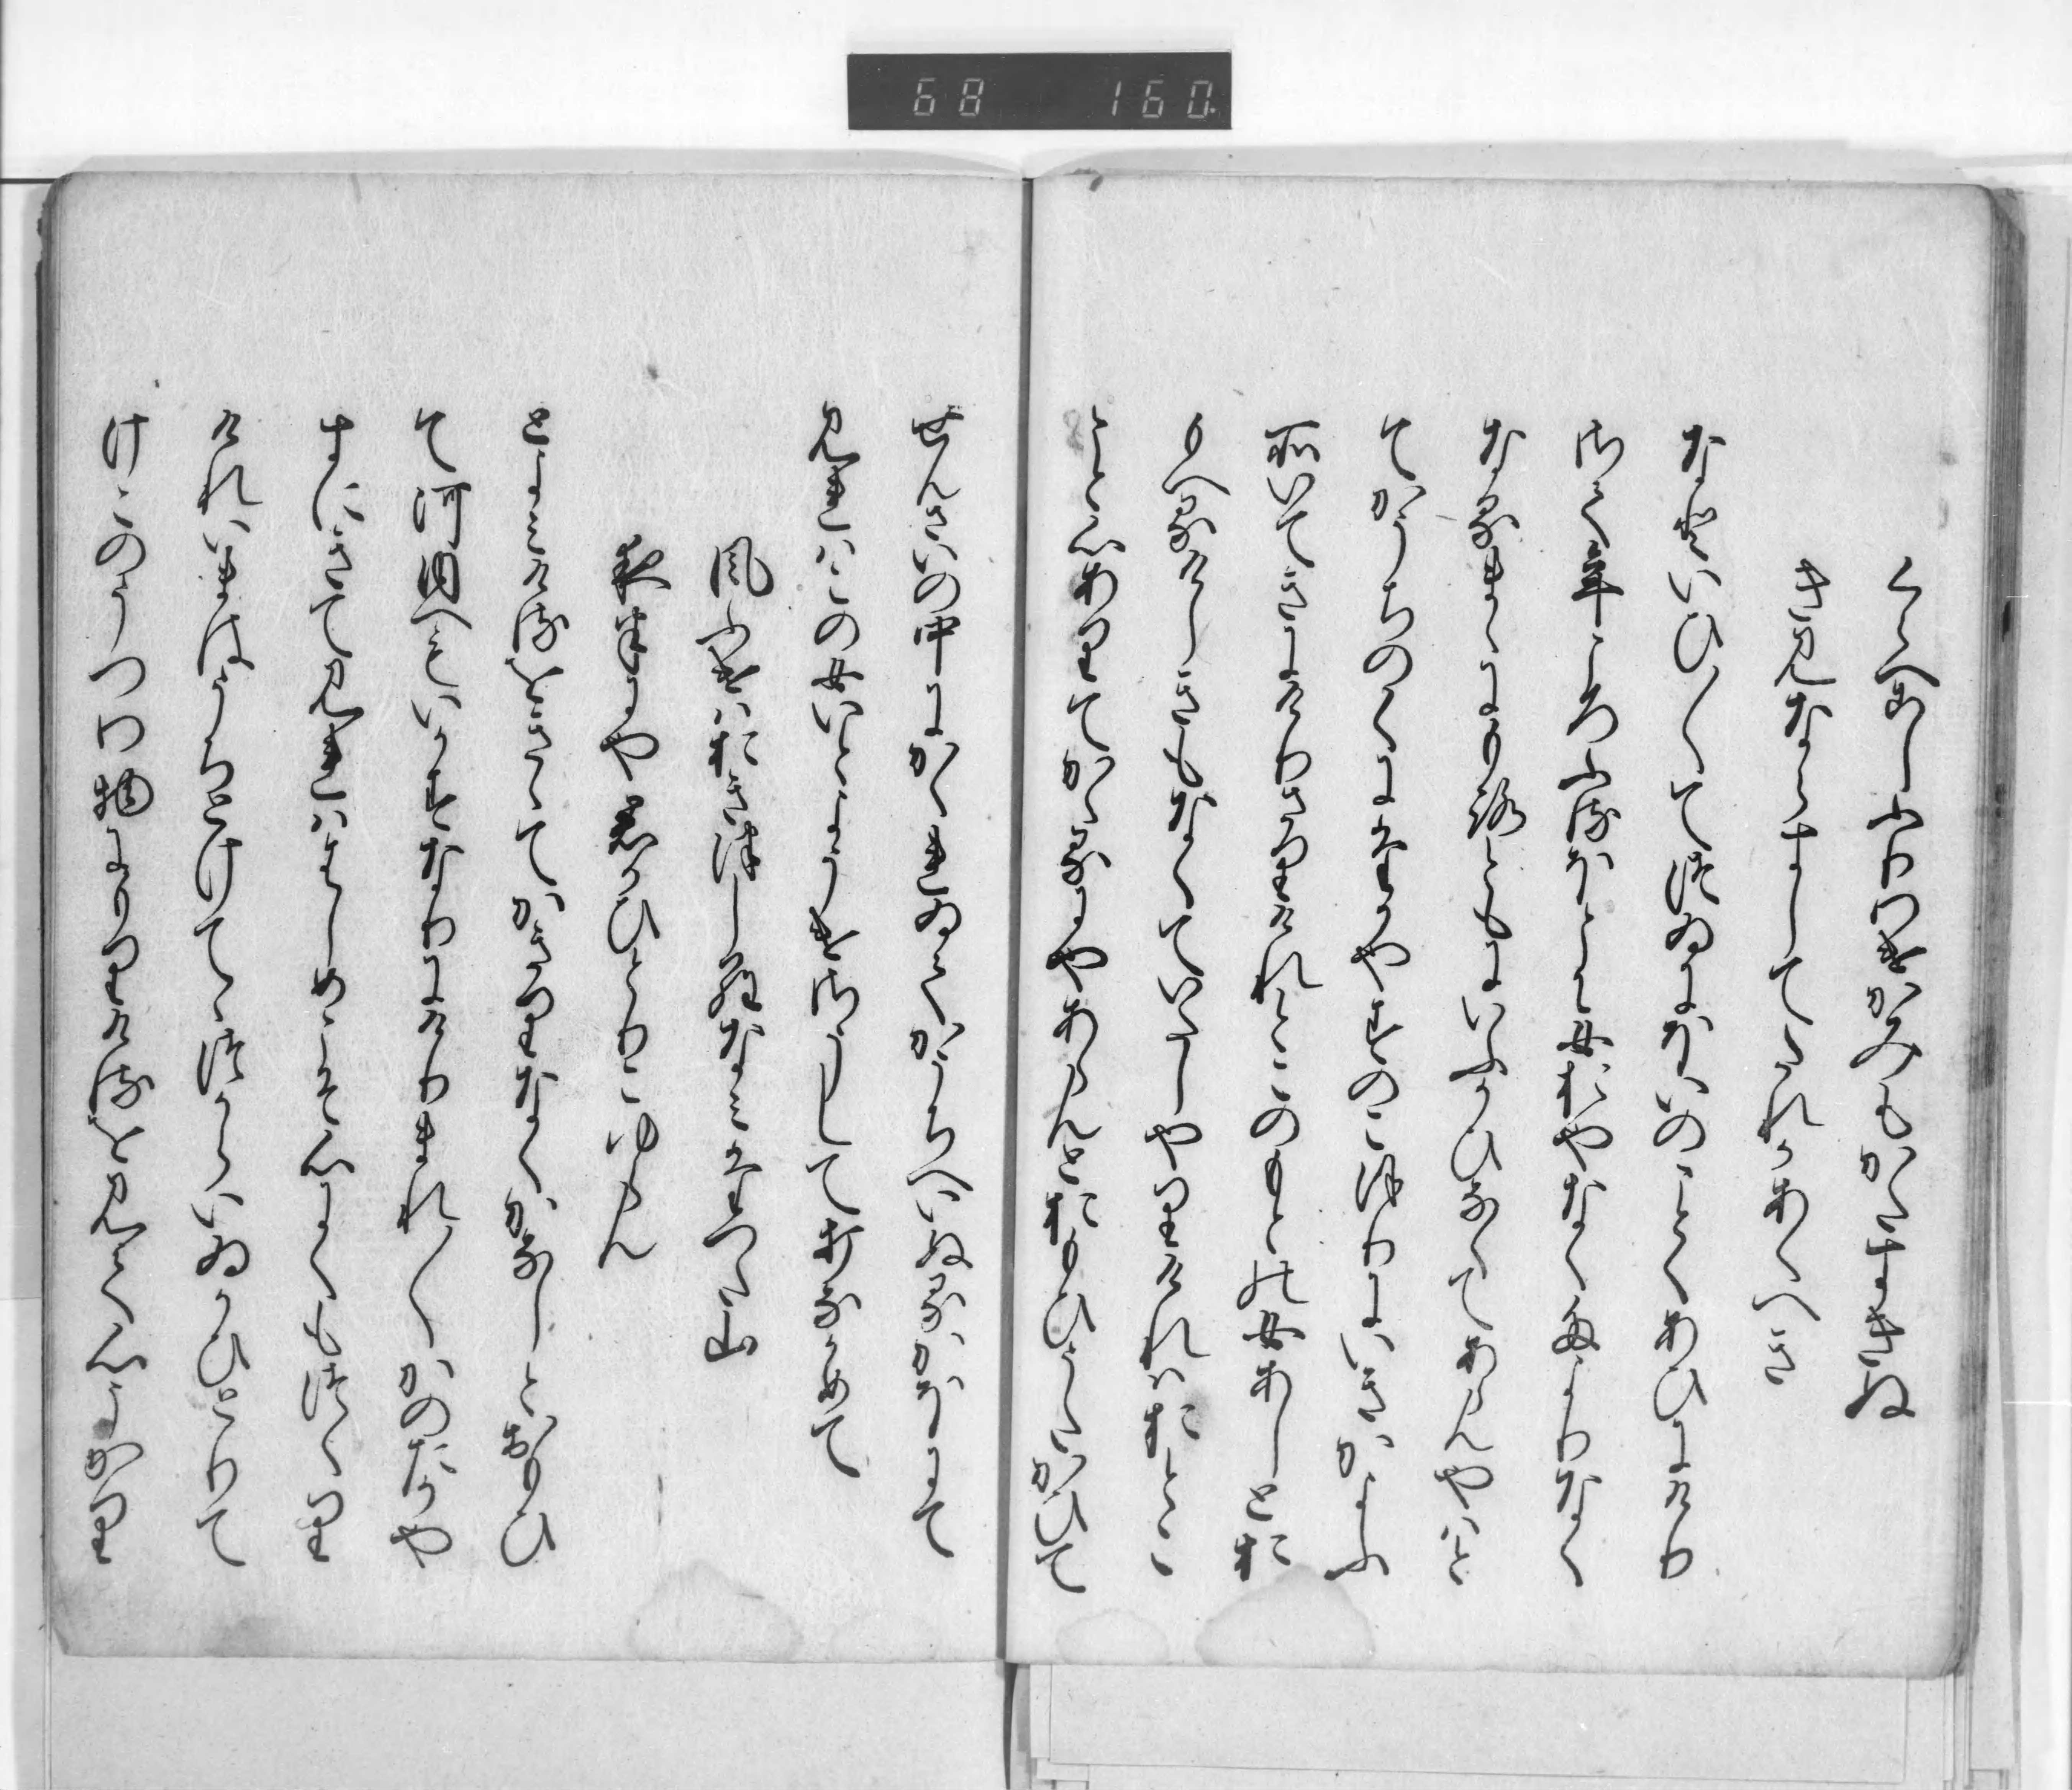 68 160
くらへこしふりわけかみもかたすきぬ
き見ならすしてたれかあくへき
なといひ〱てつゐにほいのことくあひにけり
さて年ころふるほとに女おやなくたよりなく
なるまゝにもろともにいふかひなくてあらんやはと
てかうちのくにたかやすのこほりにいきかよふ
所いてきにけりさりけれとこのもとの女あしとお
もへるけしきもなくていたしやりけれはおとこ
こと心ありてかゝるにやあらんとおもひうたかひて
せんさいの中にかくれゐてかうちへいぬるかほにて
見れはこの女いとようけさうしてうちなかめて
風ふけはおきつしら浪たつた山
夜半にや君かひとりこゆらん
とよみけるをきゝてかきりなくかなしとおもひ
て河内へもいかすなりにけりまれ〱かのたかや
すにきて見れははしめこそ心にくもつくり
けれいまはうちとけてゝつからいゐかひとりて
けこのうつは物にもりけるを見て心うかり